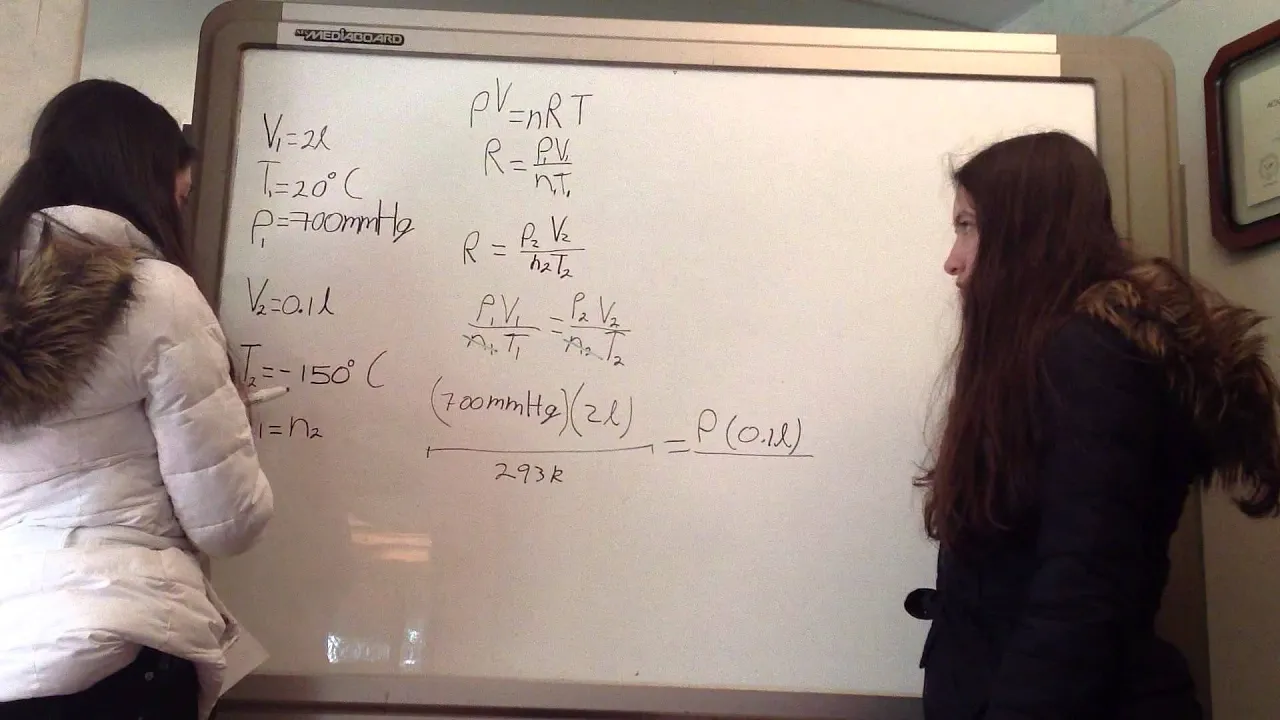 MEDIABOARD
V₁=2l
T₁=20°C
P₁=700mmHg
V₂=0.1l
T₂=-150°C
₁=n₂
PV=nRT
R=P₁V₁/n₁T₁
R=P₂V₂/n₂T₂
P₁V₁/n₁T₁=P₂V₂/n₂T₂
(700mmHg)(2l)/293k=P(0.1l)/